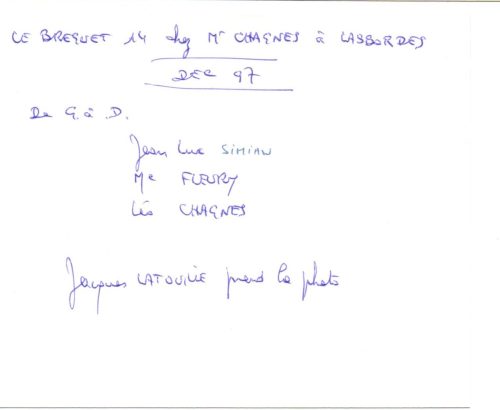 LE BREGUET 14 chez Mr CHAGNES à LASBORDES
DEC 97
De G. à D.
Jean Luc SIMIAN
Mc FLEURY
Léo CHAGNES
Jacques LATOUILLE prend la photo